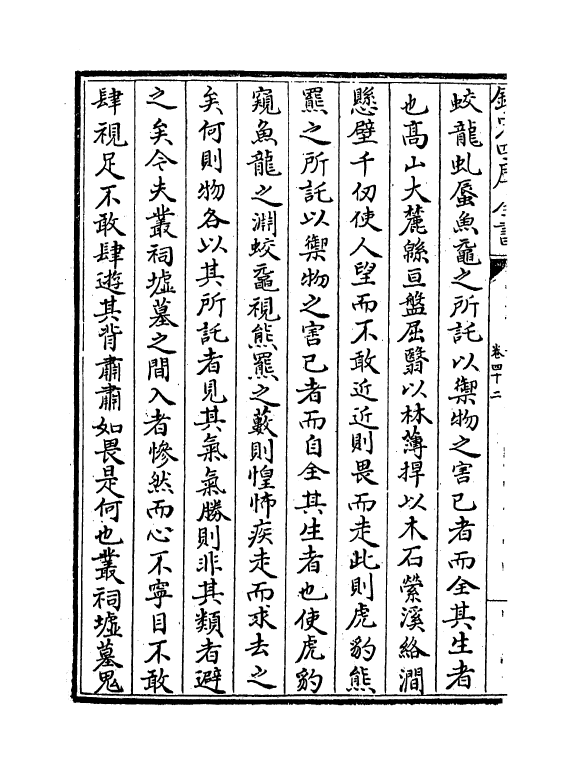 欽定四庫全書
卷四十二
蛟龍虬蜃魚黿之所託以禦物之害已者而全其生者
也高山大麓緜亘盤屈翳以林薄捍以木石縈溪絡澗
懸壁千仞使人望而不敢近近則畏而走此則虎豹熊
羆之所託以禦物之害已者而自全其生者也使虎豹
窺魚龍之淵蛟黿視熊羆之藪則惶怖疾走而求去之
矣何則物各以其所託者見其氣氣勝則非其類者避
之矣今夫叢祠墟墓之間入者慘然而心不寧目不敢
肆視足不敢肆遊其背肅肅如畏是何也叢祠墟墓鬼